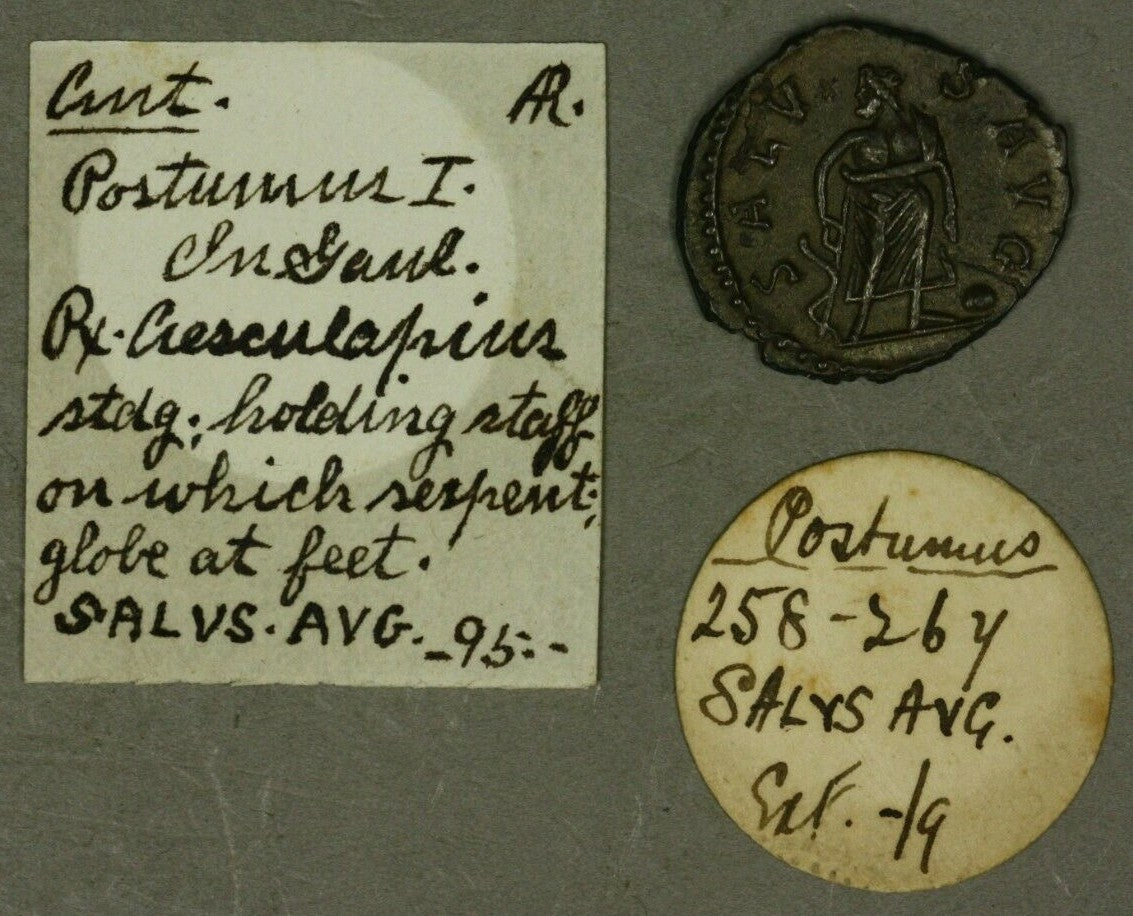 Ant. AR.
Postumus I.
In Gaul.
Rx. Aesculapius
stdg; holding staff
on which serpent;
globe at feet.
SALVS. AVG. -95.-
SALVS AVG
Postumus
258-267
SALVS AVG.
Ext. -/9